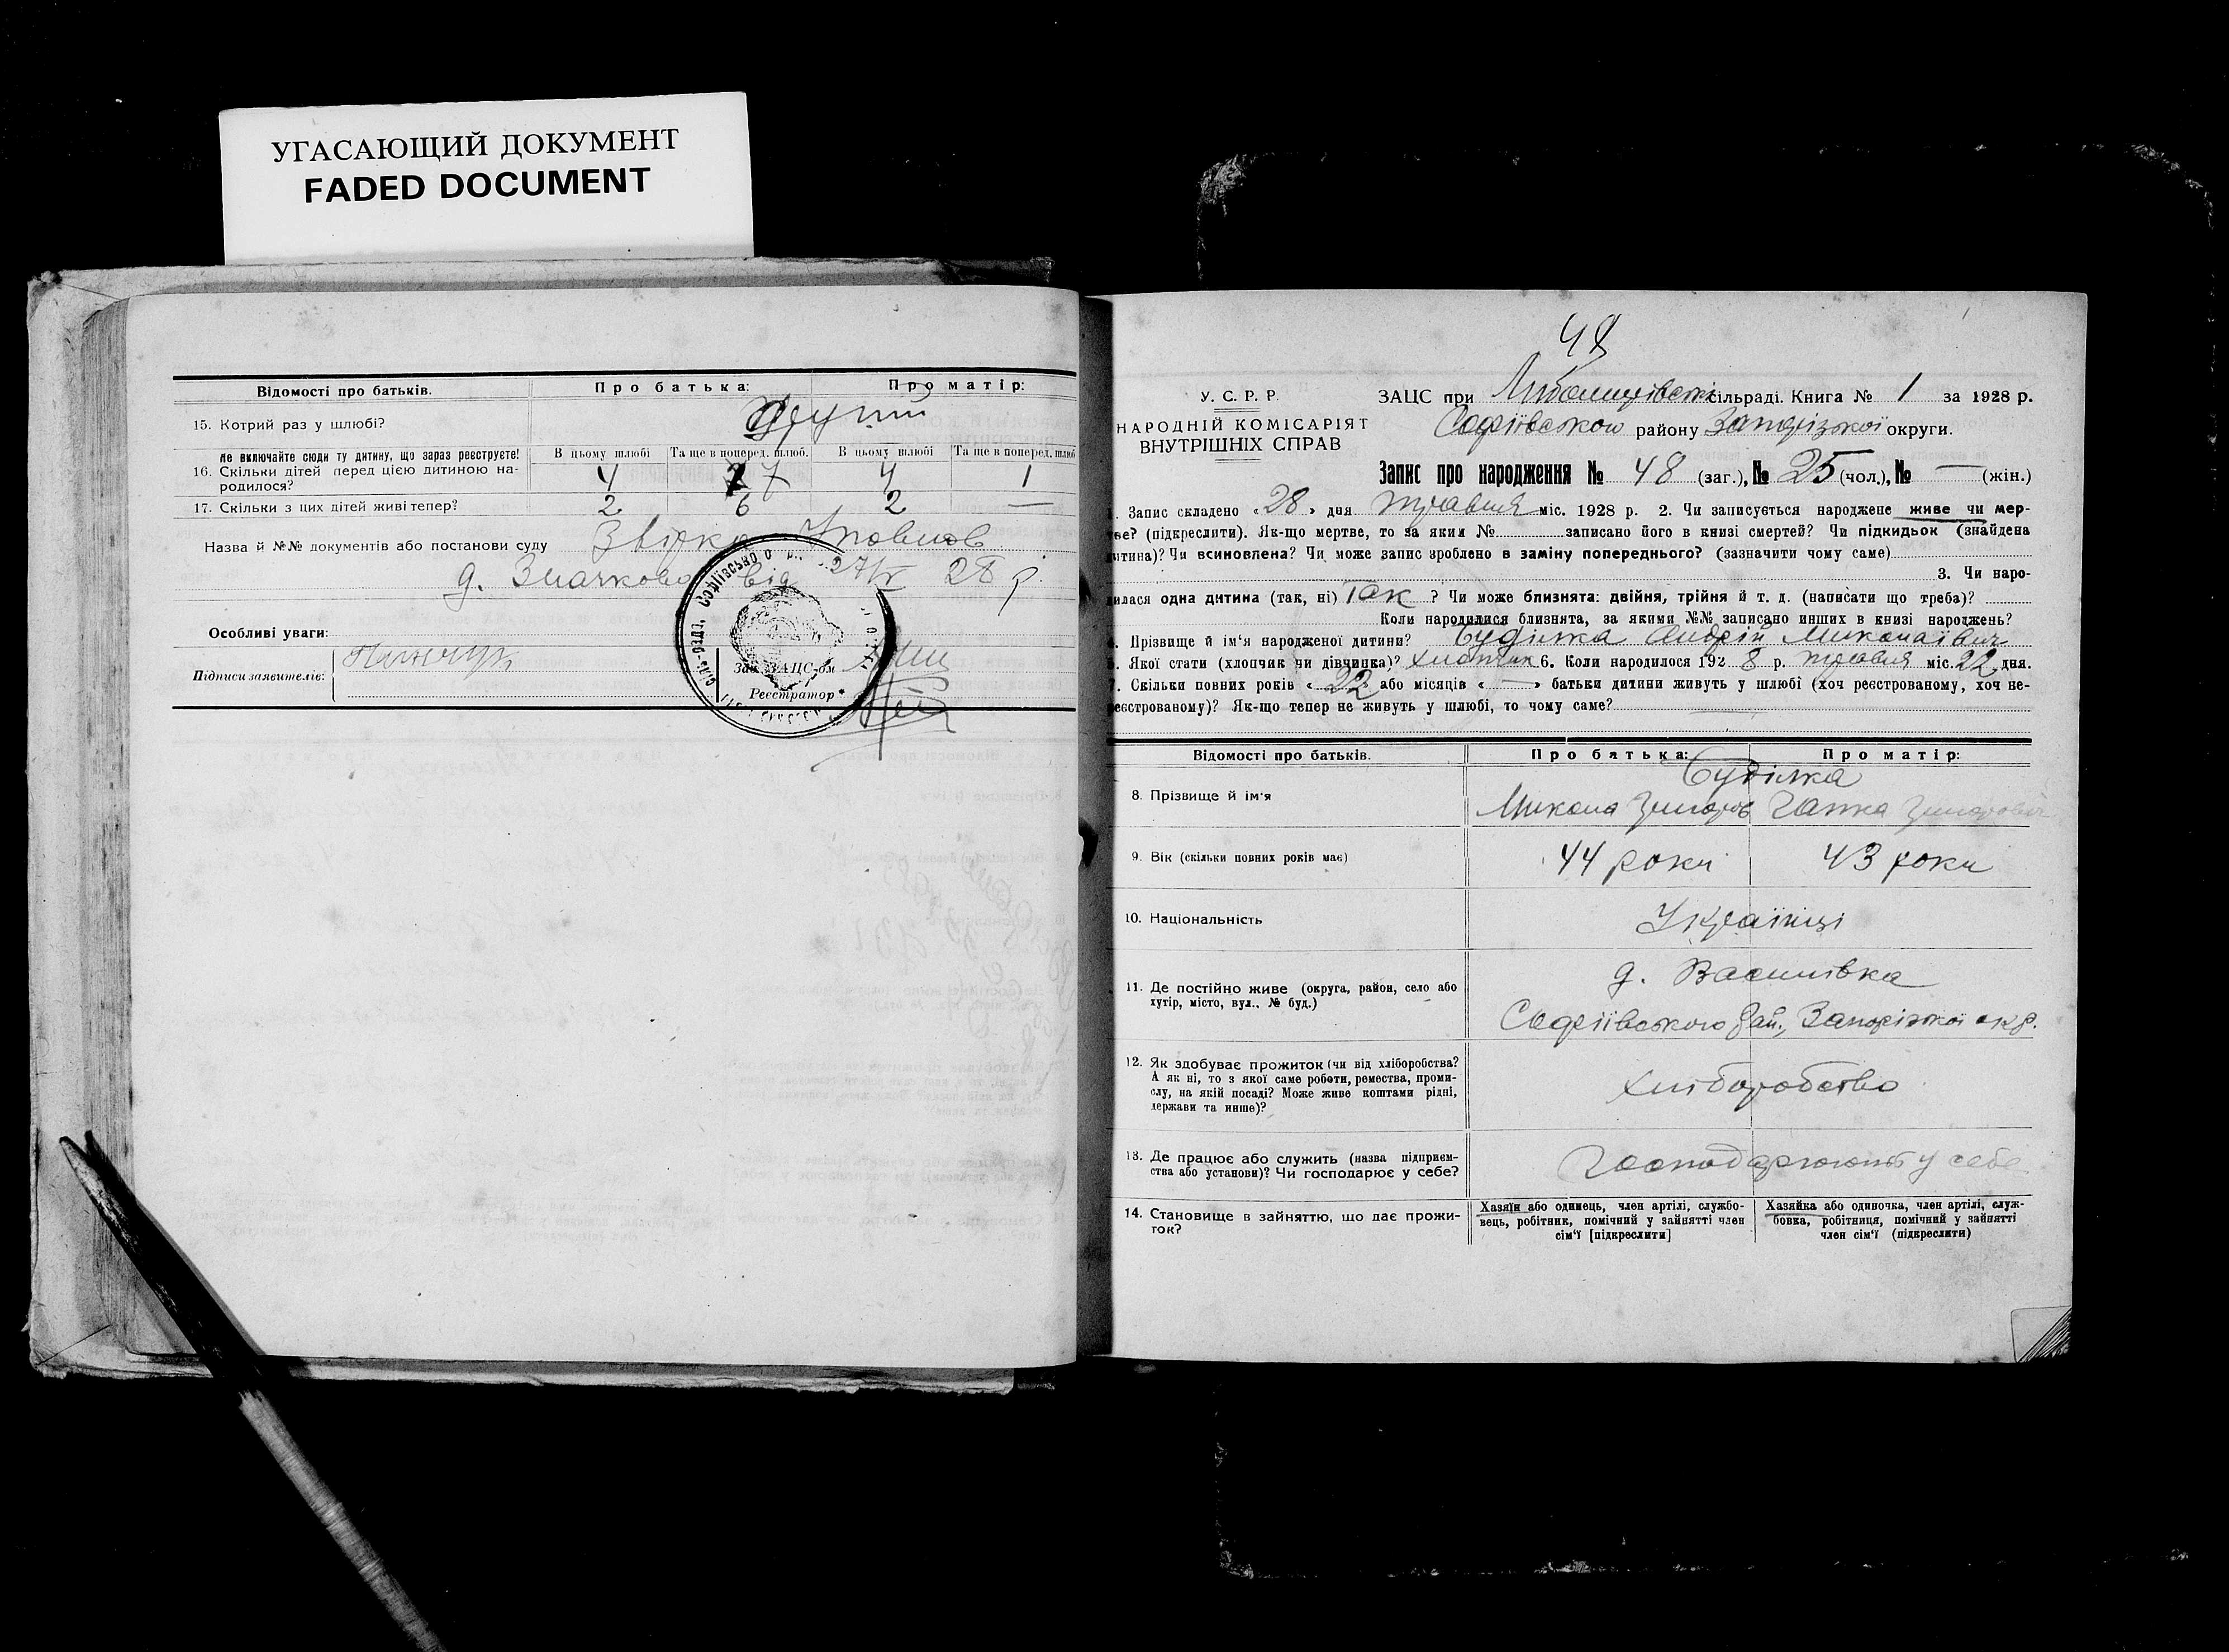 УГАСАЮЩИЙ ДОКУМЕНТ
FADED DOCUMENT
Відомості про батьків. Про батька: Про матір:
15. Котрий раз у шлюбі? Другий
Не включайте сюди ту дитину, що зараз реєструєте! В цьому шлюбі Та ще в поперед. шлюб. В цьому шлюбі Та ще в поперед. шлюб
16. Скільки дітей перед цією дитиною на- 4 7 4 1
родилося?
17. Скільки з цих дітей живі тепер? 2 6 2 —
Назва й №№ документів або постанови суду
від 27/V 28 р.
Особливі уваги:
Підписи заявителів:
Зав. ЗАЦС-ом
Реєстратор
48
У. С. Р. Р.
НАРОДНІЙ КОМІСАРІЯТ
ВНУТРІШНІХ СПРАВ
ЗАЦС при сільраді. Книга № 1 за 1928 р.
Софіївського району Запорізької округи.
Запис про народження № 48 (заг.), № 25 (чол.), № — (жін.)
Запис складено «28» дня травня міс. 1928 р. 2. Чи записується народжене живе чи мер-
тве? (підкреслити). Як-що мертве, то за яким № записано його в книзі смертей? Чи підкидьок (знайдена
дитина)? Чи всиновлена? Чи може запис зроблено в заміну попереднього? (зазначити чому саме)
3. Чи наро-
дилася одна дитина (так, ні) Так ? Чи може близнята: двійня, трійня й т. д. (написати що треба)?
Коли народилися близнята, за якими №№ записано инших в книзі народжень?
Прізвище й ім'я народженої дитини? Буділка Андрій Миколаївич
Якої стати (хлопчик чи дівчинка)? Хлопчик 6. Коли народилося 1928 р. травня міс. 22 дня.
7. Скільки повних років «22» або місяців «—» батьки дитини живуть у шлюбі (хоч реєстрованому, хоч не-
реєстрованому)? Як-що тепер не живуть у шлюбі, то чому саме?
Відомості про батьків. Про батька: Про матір:
Буділка
8. Прізвище й ім'я Микола Григоров Ганка Григорович
9. Вік (скільки повних років має) 44 роки 43 роки
10. Національність Українці
д. Василівка
11. Де постійно живе (округа, район, село або
хутір, місто, вул., № буд.)
Софіївського рай., Запорізької окр.
12. Як здобуває прожиток (чи від хліборобства?
А як ні, то з якої саме роботи, ремества, проми-
слу, на якій посаді? Може живе коштами рідні,
держави та инше)?
хліборобство
13. Де працює або служить (назва підприєм-
ства або установи)? Чи господарює у себе?
Господарюють у себе
14. Становище в зайняттю, що дає прожи-
ток?
Хазяїн або одинець, член артілі, службо-
вець, робітник, помічний у зайнятті член
сім'ї [підкреслити]
Хазяйка або одиночка, член артілі, служ-
бовка, робітниця, помічний у зайнятті
член сім'ї (підкреслити)